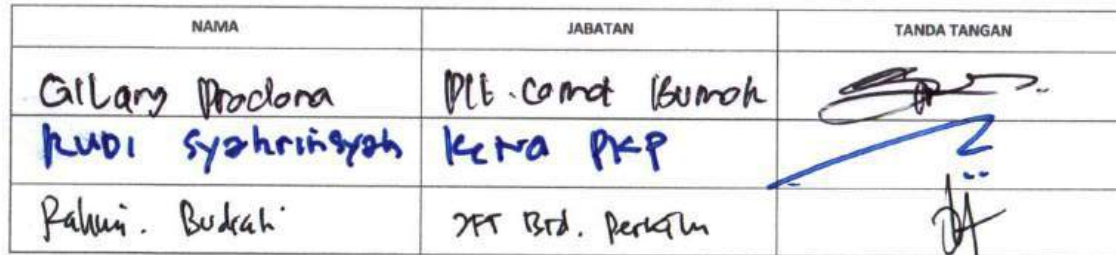 NAMA JABATAN TANDA TANGAN
Gilang Pradana Plt. Camat
RUDI Syahrinsyah Ketua PKP
Rahmi. Budiati JFT Bid. Perkim